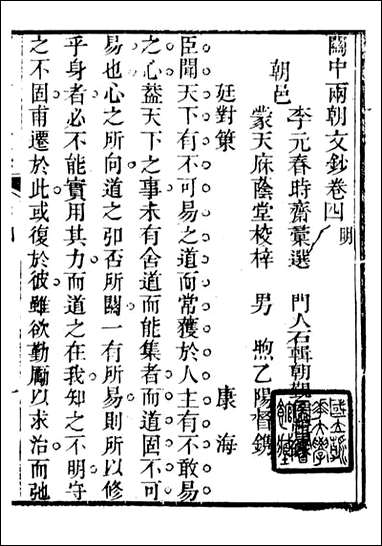 關中兩朝文鈔卷四 明
李元春時齋彙選 門人石輯朝觀
朝邑
蒙天庥蔭堂校梓 男 煦乙陽督鐫
廷對策 康海
臣聞天下有不可易之道而常獲於人主有不敢易
之心葢天下之事未有舍道而能集者而道固不可
易也心之所向道之卽否所關一有所易則所以修
乎身者必不能實用其力而道之在我知之不明守
之不固甫遷於此或復於彼雖欲勤勵以求治而弛